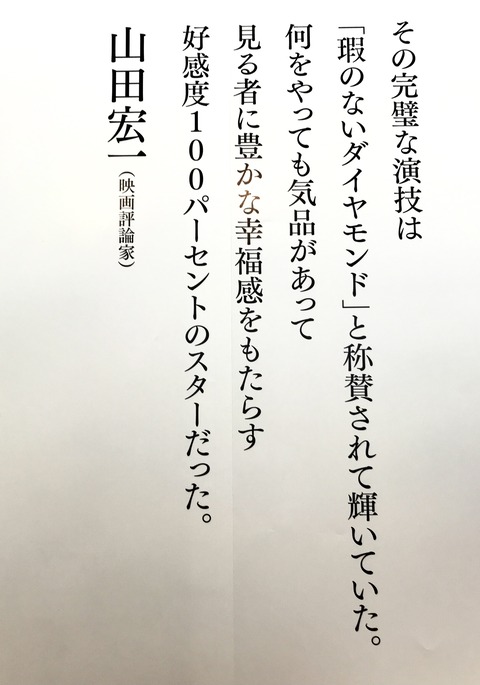 その完璧な演技は
「瑕のないダイヤモンド」と称賛されて輝いていた。
何をやっても気品があって
見る者に豊かな幸福感をもたらす
好感度100パーセントのスターだった。
山田宏一（映画評論家）